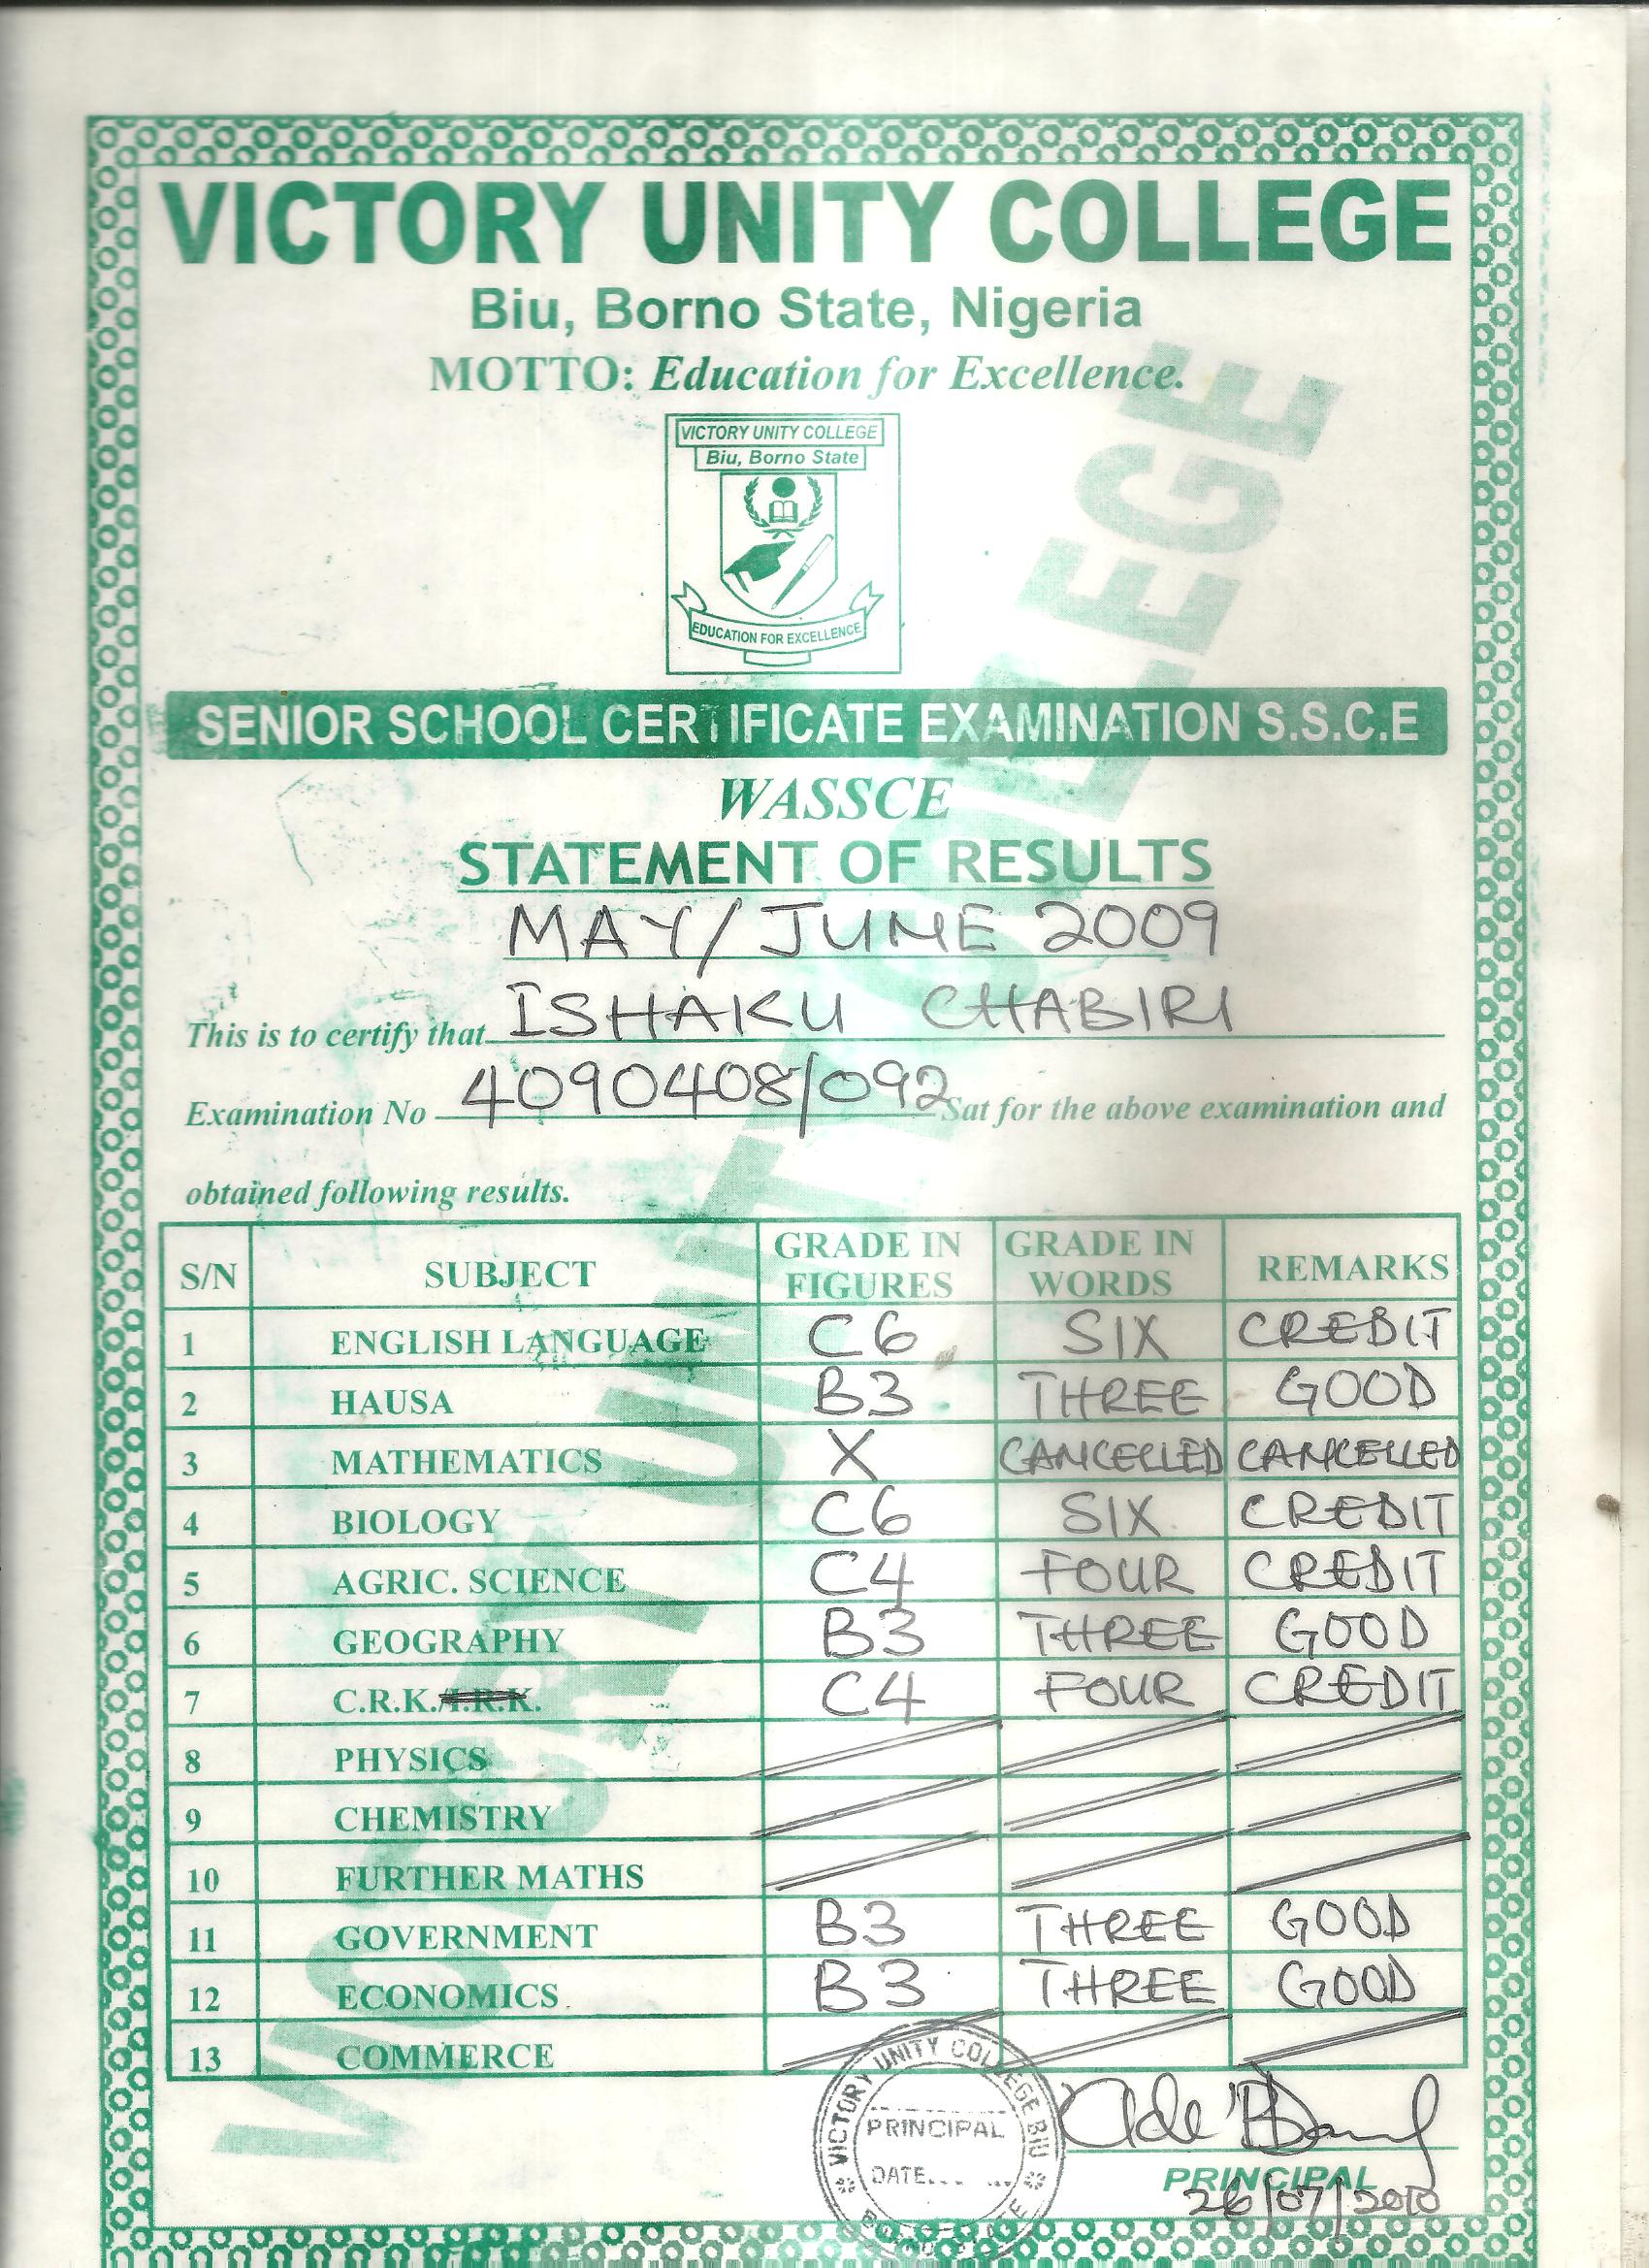 VICTORY UNITY COLLEGE
Biu, Borno State, Nigeria
MOTTO: Education for Excellence.
VICTORY UNITY COLLEGE
Biu, Borno State
EDUCATION FOR EXCELLENCE
SENIOR SCHOOL CERTIFICATE EXAMINATION S.S.C.E
WASSCE
STATEMENT OF RESULTS
MAY/JUNE 2009
This is to certify that ISHAKU CHABIRI
Examination No 4090408/092 Sat for the above examination and
obtained following results.
S/N SUBJECT GRADE IN FIGURES GRADE IN WORDS REMARKS
1 ENGLISH LANGUAGE C6 SIX CREDIT
2 HAUSA B3 THREE GOOD
3 MATHEMATICS X CANCELLED CANCELLED
4 BIOLOGY C6 SIX CREDIT
5 AGRIC. SCIENCE C4 FOUR CREDIT
6 GEOGRAPHY B3 THREE GOOD
7 C.R.K./I.R.K. C4 FOUR CREDIT
8 PHYSICS
9 CHEMISTRY
10 FURTHER MATHS
11 GOVERNMENT B3 THREE GOOD
12 ECONOMICS B3 THREE GOOD
13 COMMERCE
VICTORY UNITY COLLEGE BIU
PRINCIPAL
DATE
PRINCIPAL
26/07/2010
VICTORY UNITY COLLEGE